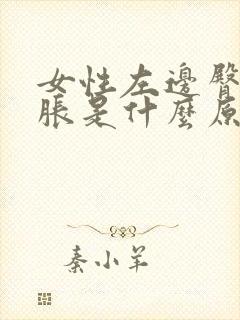 女性左邊臀
脹是什麼原
秦小羊